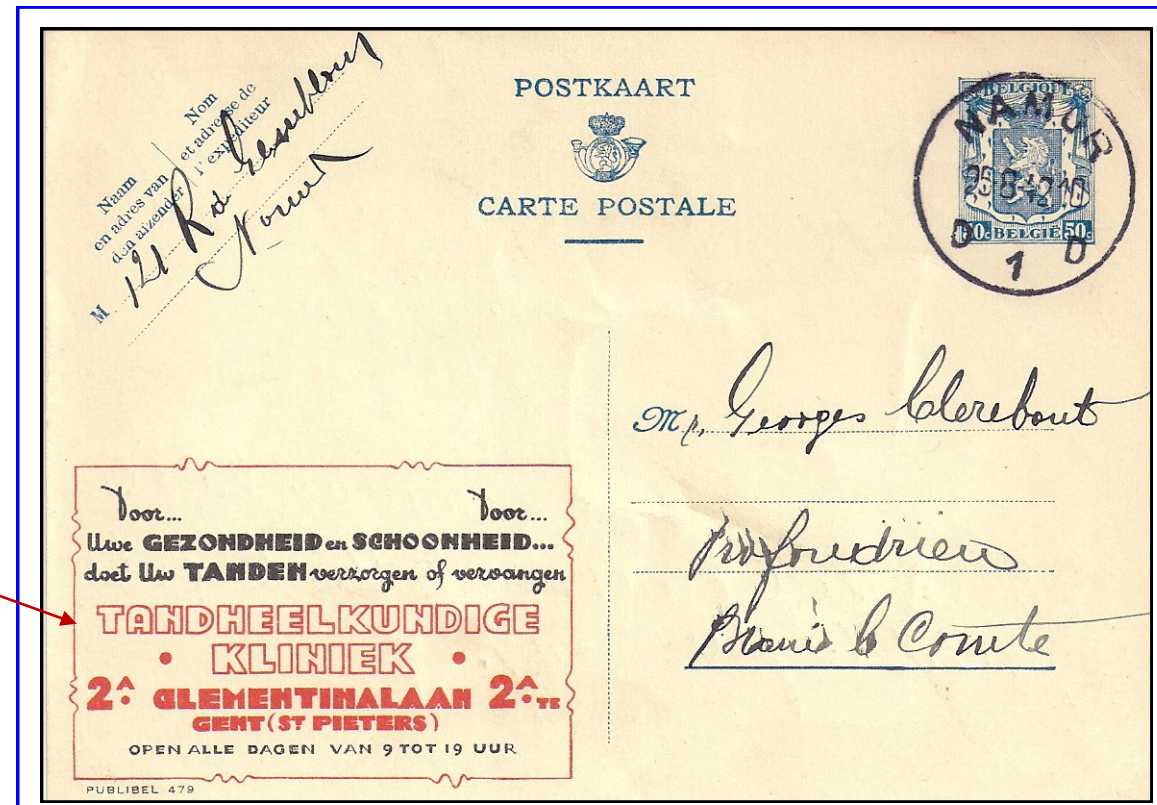 Naam
en adres van
den afzender
Nom
et adresse de
l'expéditeur
M 121 R de
Namur
POSTKAART
CARTE POSTALE
BELGIQUE
50c BELGIË 50c
NAMUR
25 8 42 10
D 1 D
Mr. Georges Clerebout
Profondrieu
le Comte
Voor... Voor...
Uwe GEZONDHEID en SCHOONHEID...
doet Uw TANDEN verzorgen of vervangen
TANDHEELKUNDIGE
• KLINIEK •
2^: CLEMENTINALAAN 2^: TE
GENT (ST PIETERS)
OPEN ALLE DAGEN VAN 9 TOT 19 UUR
PUBLIBEL 479